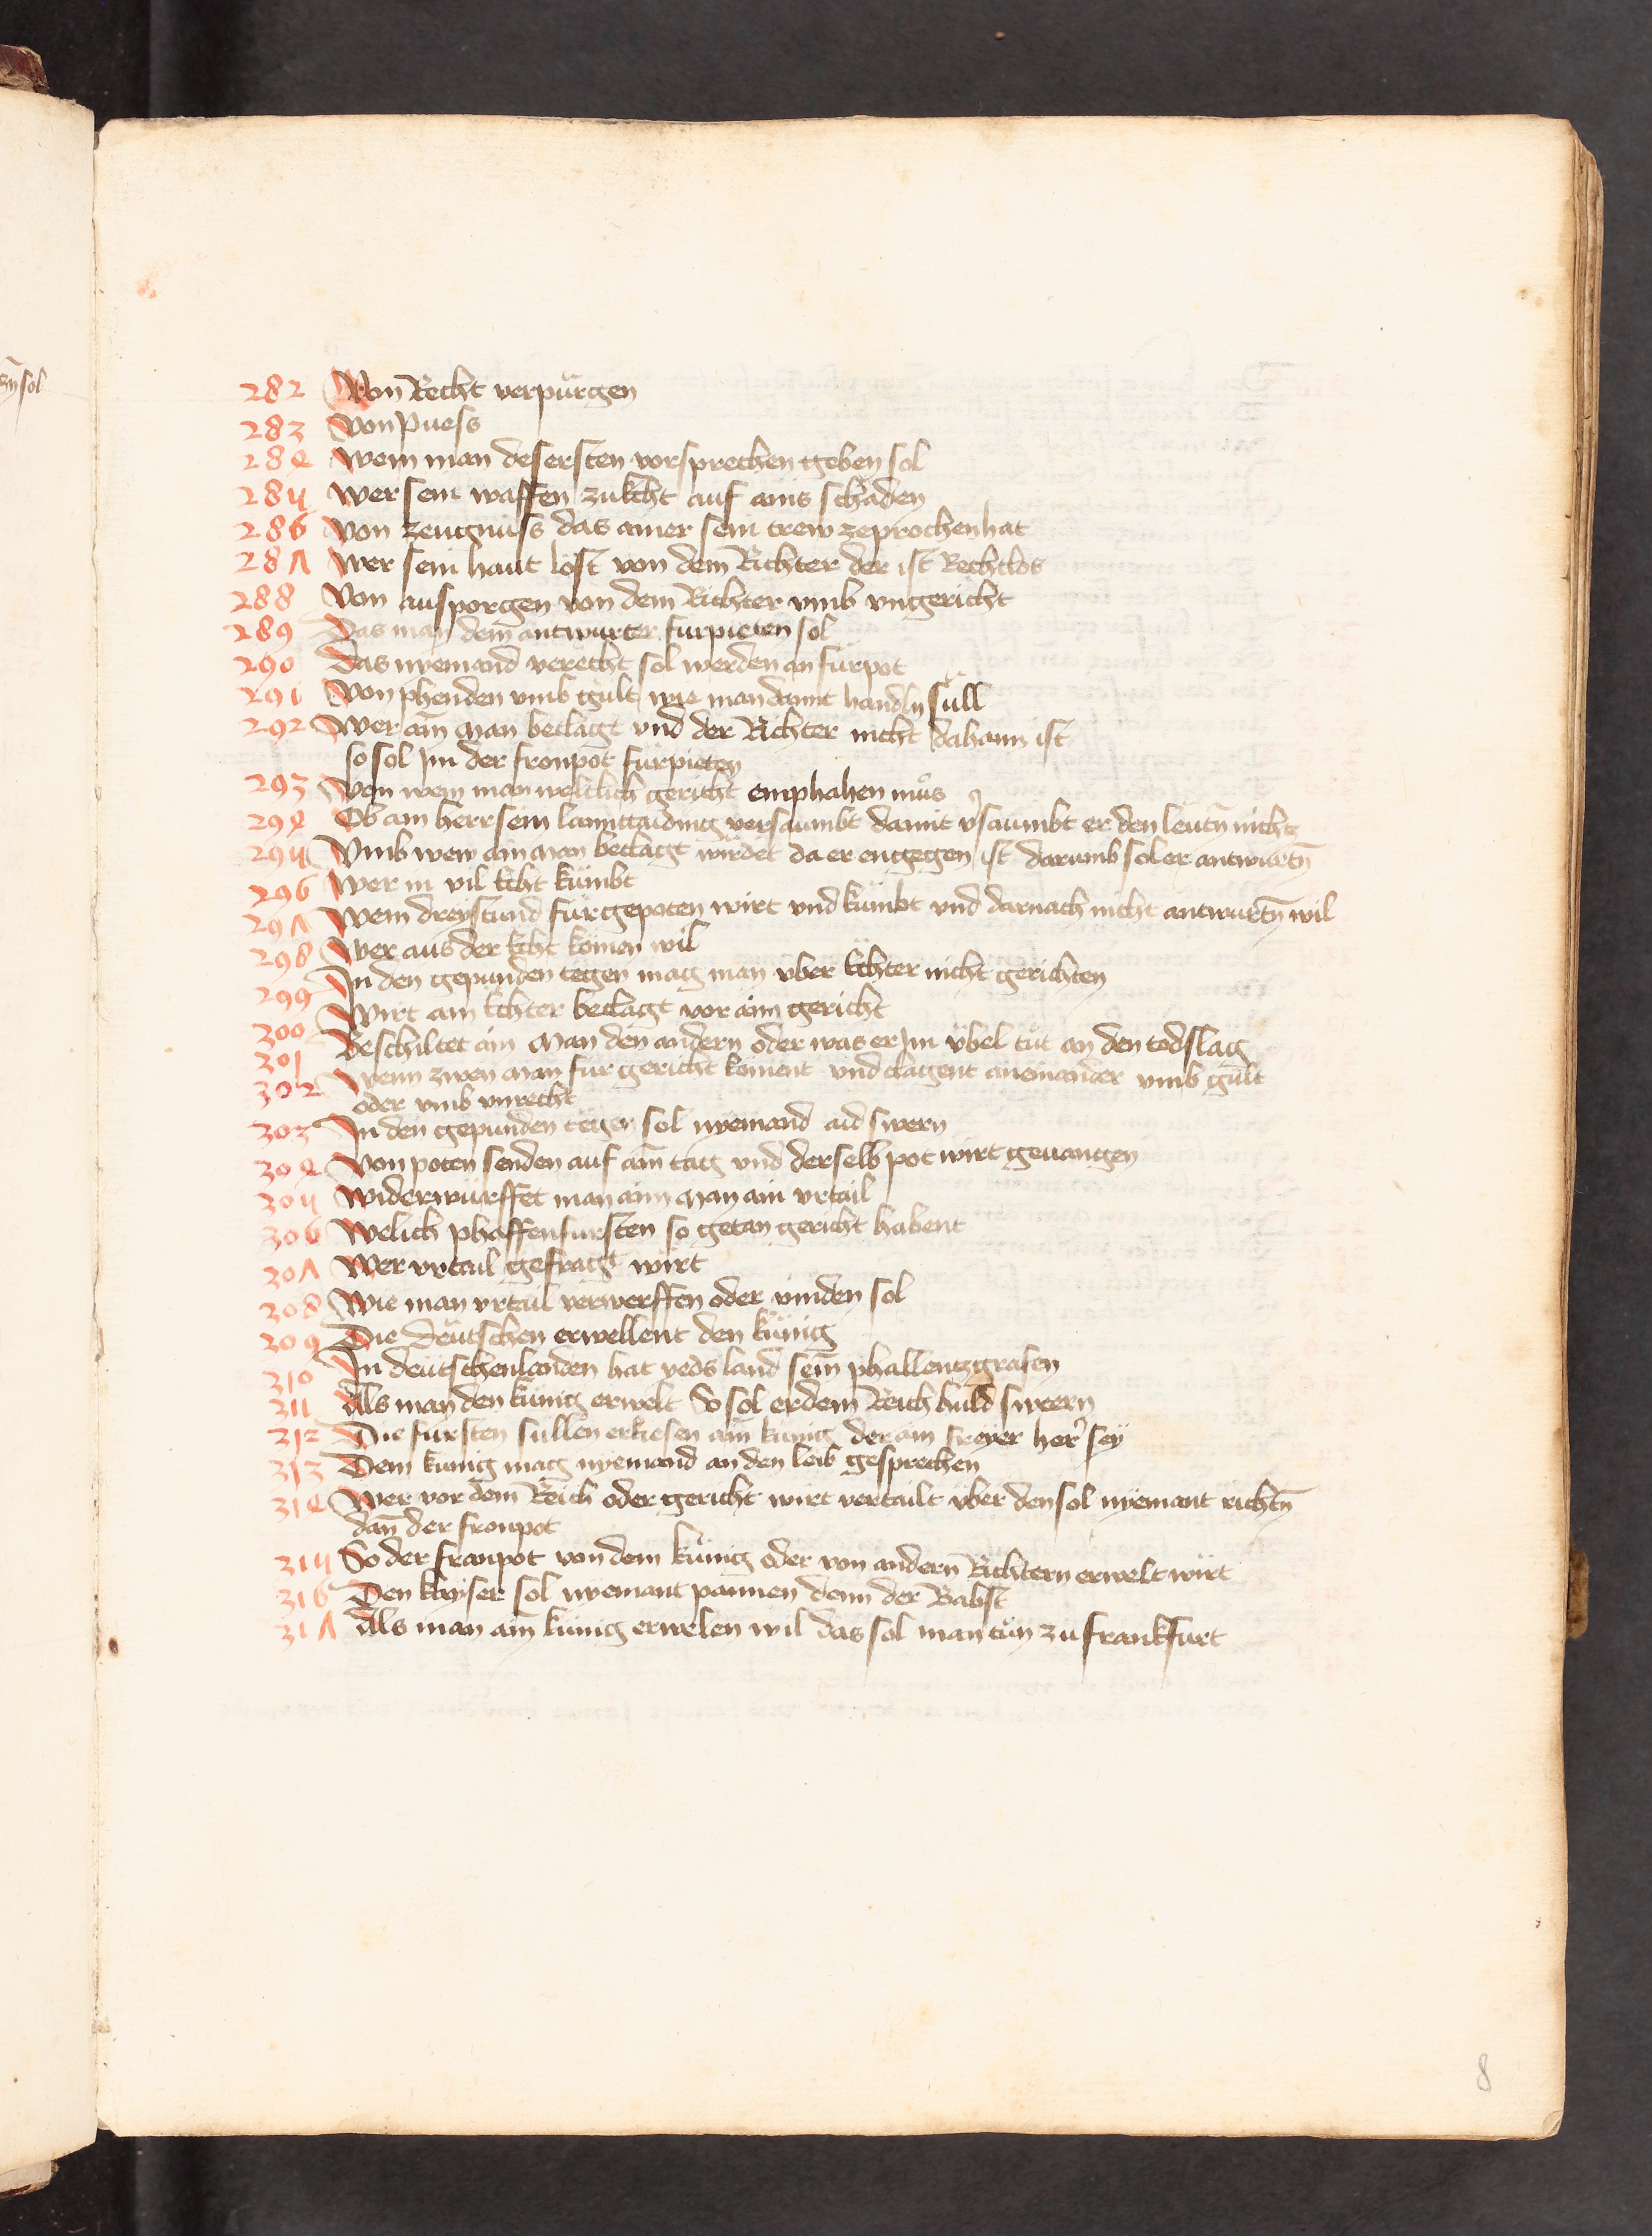 282 Von Recht verpürgen
283 Von Puess
284 Wem man des ersten vorsprechen geben sol
285 Wer sein waffen zukcht auf ains schaden
286 Von zeugnüss das ainer sein trew zeprochen hat
287 Wer sein haut löst von dem Richter der ist Rechtlos
288 Von ausporgen von dem Richter vmb vngericht
289 Das man dem antwurter furpieten sol
290 Das nyemand verecht sol werden an fürpot
291 Von phenden vmb gült wie man damit handln süll
292 Wer ain man beclagt vnd der Richter nicht dahaim ist
so sol Im der fronpot fürpieten
293 Von wem man weltlich gericht emphahen muos
294 Ob ain herr sein lanntaiding versaumbt damit vsaumbt er den leutn̄ nicht
295 Vmb wew ain man beclagt wirdet da er engegen ist darumb sol er antwurtn̄
296 Wer in vil Echt kümbt
297 Wem dreystund fürgepoten wirt vnd kümbt vnd darnach nicht antwurtn̄ wil
298 Wer aus der Echt komen wil
299 In den gepunden tegen mag man vber Echter nicht gerichten
300 Wirt ain Echter beclagt vor aim gericht
301 Beschiltet ain man den andern oder was er Im übel tut an den todslag
302 Wenn zwen man für gericht koment vnd clagent aneinander vmb gült
oder vmb vnrecht
303 In den gepunden tegen sol nyemand aid swern
304 Von poten senden auf ain tag vnd derselb pot wirt geuangen
305 Widerwürffet man aim man ain vrtail
306 Welich phaffenfursten so getan gericht habent
307 Wer vrtail gefragt wirt
308 Wie man vrtail verwerffen oder vinden sol
309 Die Deütschen erwellent den künig
310 In deutschenlanden hat yeds land sein phallentzgrafen
311 Als man den künig erwelt So sol er dem Reich huld sweern
312 Die fürsten süllen erkiesen ain künig der ain freyer her sey
313 Dem kunig mag nyemand an den leib gesprechen
314 Wer vor dem Reich oder gericht wirt vertailt vber den sol nyemant richtn̄
dan̄ der fronpot
315 So der franpot von dem künig oder von andern Richtern erwelt wirt
316 Den kayser sol nyemant pannen denn der Babst
317 Als man ain künig erwelen wil das sol man tun zu frankfurt
8